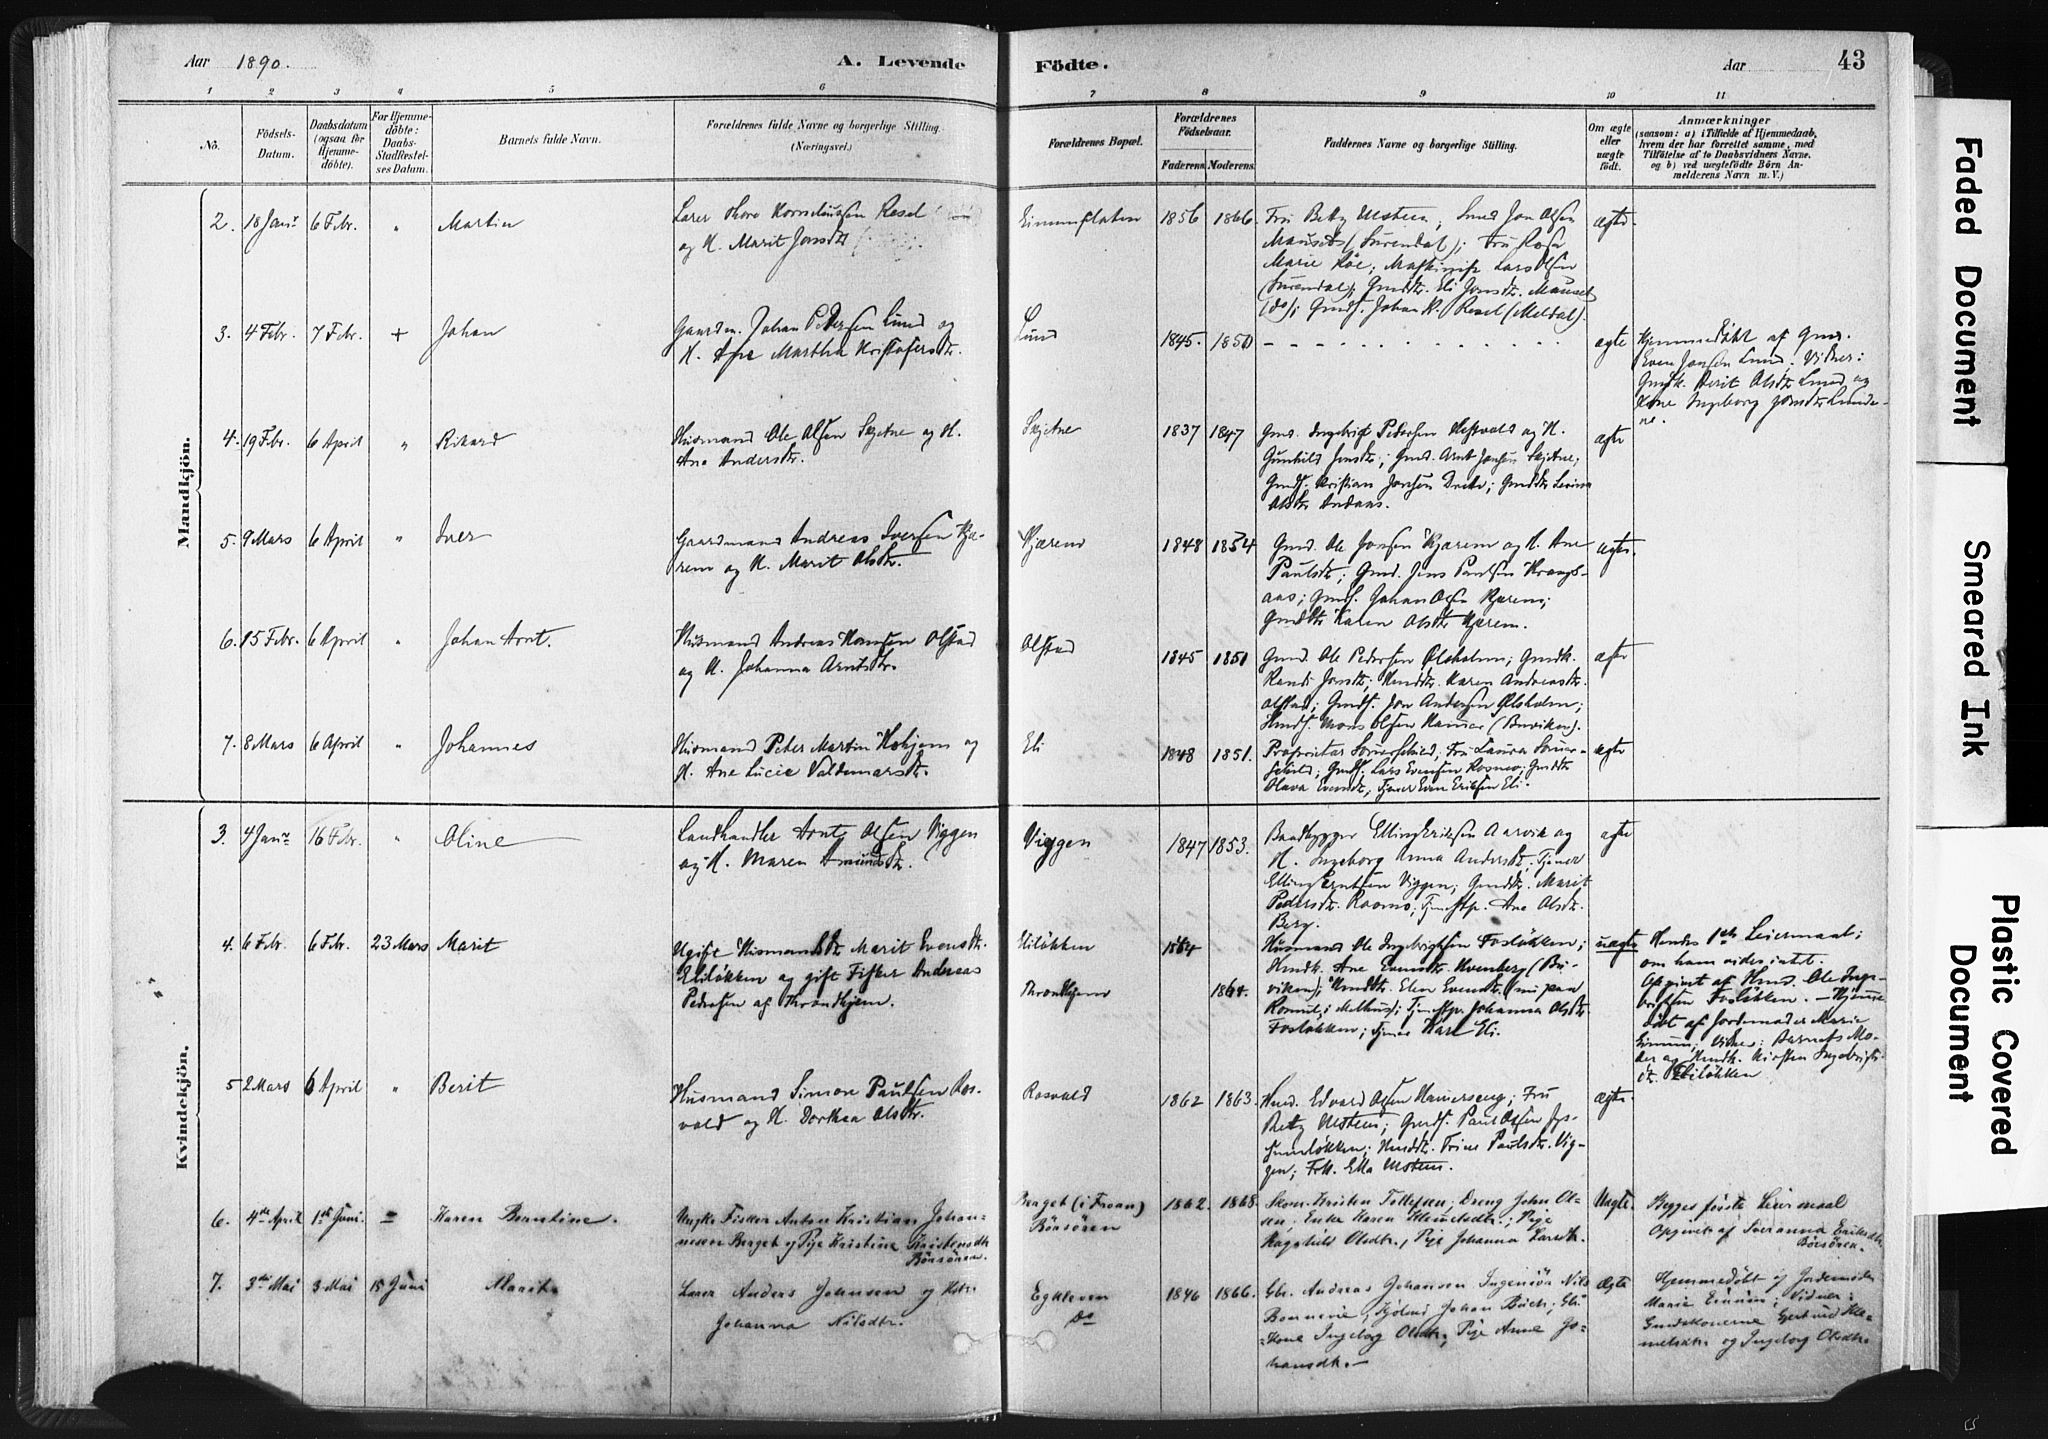 Aar 1890.
A. Levende
Födte.
Aar
43
1 2 3 4 5 6 7 8 9 10 11
No.
Födsels-
Datum.
Daabsdatum
(ogsaa for
Hjemme-
döbte).
For Hjemme-
döbte:
Daabs-
Stadfæstel-
ses Datum.
Barnets fulde Navn.
Forældrenes fulde Navne og borgerlige Stilling.
(Næringsvei.)
Forældrenes Bopæl.
Forældrenes
Födselsaar.
Faderens. Moderens.
Faddernes Navne og borgerlige Stilling.
Om ægte
eller
uægte
födt.
Anmærkninger
(saasom: a) i Tilfælde af Hjemmedaab,
hvem der har forrettet samme, med
Tilföielse af to Daabsvidners Navne,
og b) ved uægtefödte Börn An-
melderens Navn m. V.)
Mandkjön.
2. 18 Janr 6 Febr. " Martin
og H. Marit Jonsdtr
1856 1866.
Fru Betzy Ulsteen; Smed Jon Olsen
Mausets (Surendal); Fru Rosa
Marie Höe; Maskinist Lars Olsen
(Surendal); Gmddtr. Eli Jonsdtr. Mauset
(do); Gmds. Johan K. Resel (Meldal).
ægte.
3. 4 Febr. 7 Febr. + Johan
Gaardm. Johan Pedersen Lund og
H. Ane Martha Kristofersdtr.
Lund
1845. 1850
ægte
Hjemmedöbt af Gmd.
Even Jonsen Lund. Vidner:
Gmdk. Berit Olsdtr Lund og
Ane Ingeborg Jonsdtr Lunde-
ne.
4. 19 Febr. 6 April " Rikard
Husmand Ole Olsen Skjetne og H.
Ane Andersdtr.
Skjetne
1837 1847
Gmd. Ingebrigt Pedersen Hestvold og H.
Gunhild Jonsdtr; Gmd. Arnt Jonsen Skjetne;
Gmds. Kristian Jonsen
ægte
5. 9 Mars 6 April " Iver
Gaardmand Andreas Iversen Kjæ-
rem og H. Marit Olsdtr.
Kjærem
1848 1854
Gmd. Ole Jonsen Kjærem og H. Ane
Paulsdtr; Gmd. Jens Paulsen Krangs-
aas; Gmds. Johan Olsen Kjærem;
Gmddtr Karen Olsdtr Kjærem.
ægte.
6. 15 Febr. 6 April " Johan Arnt.
Husmand Andreas Hansen Olstad
og H. Johanna Arntsdtr.
Olstad
1845 1851
Gmd. Ole Pedersen Ölsholm; Gmdk.
Randi Jonsdtr; Hmddtr. Karen Andreasdtr.
Olstad; Gmds. Jon Andersen Ölsholm;
Hmds. Mons Olsen Hammer (Buviken).
ægte
7. 8 Mars 6 April " Johannes
Husmand Peter Martin Hohjem og
H. Ane Lucie Valdemarsdtr.
Eli
1848 1851.
Proprietær
Gmds. Lars Evensen Rosmo; Gmddtr
Olava Evensdtr; Tjener Even Eriksen Eli.
ægte
Kvindekjön.
3. 4 Janr 16 Febr. " Oline
Landhandler Arnt Olsen Viggen
og H. Maren Amundsdtr.
Viggen
1847 1853.
Baadbygger Elling Eriksen Aarvik og
H. Ingeborg Anna Andersdtr. Tjener
Elling Arntsen Viggen; Gmddtr. Marit
Pedersdtr. Rosmo; Tjenestp. Ane Olsdtr.
Berg.
ægte
4. 6 Febr. 6 Febr. 23 Mars Marit
Ugift Husmandsdtr Marit Evensdtr.
Elilökken og gift Fisker Andreas
Pedersen af Throndhjem.
Elilökken
Throndhjem
1864
1864.
Husmand Ole Ingebrigtsen Foslökken;
Hmdk. Ane Evensdtr. Hvenberg (Bu-
viken); Hmddtr. Elen Evensdtr (nu paa
Melhus); Tjenestp. Johanna Olsdtr.
Foslökken; Tjener Karl Eli.
uægte
Hendes 1ste Leiermaal;
om ham vides intet.
Opgivet af Hmd. Ole Inge-
brigtsen Foslökken. — Hjemme-
döbt af Jordemoder Marie
Eimum; Vidner: Barnets Mo-
der og Hmdk. Kirsten Ingebrigts-
dtr. Elilökken
5 2 Mars 6 April " Berit
Husmand Simon Paulsen Ros-
vold og H. Dorthea Olsdtr.
Rosvold
1862 1863.
Hmd. Edvard Olsen Hammerseng; Fru
Betzy Ulsteen; Gmds. Paul Olsen
Hmddtr. Trine Paulsdtr. Vig-
gen; Frk. Ella Ulsteen.
ægte.
6. 4de April 1ste Juni. = Karen Berntine.
Ungkr Fisker Anton Kristian Johan-
nesen Berget og Pige Kristine Kristensdtr
Börsören.
Berget (i Froan)
Börsören
1862. 1868.
Skom. Kristen Tollefsen; Dreng John Ol-
sen. Enke Karen Klemetsdtr.; Pige
Ragnhild Olsdtr., Pige Johanna Larsdtr.
Uægte.
Begges förste Leiermaal
Opgivet af Soveranna Eriksdtr
Börsören.
7. 3die Mai 3 Mai 15 Juni Marit.
Lærer Anders Johnsen og Hstr
Johanna Nilsdtr.
Egkleven
Do
1846 1866.
Gbr. Andreas Johansen Ingeniör Nils
Johan Buch; Gbr
-Kone Ingeborg Olsdtr, Pige Anne Jo-
hansdtr. —
Ægte
Hjemmedöbt af Jordemoder
Marie Eimum; Vidner:
Gmdskonerne Gjertrud Kle-
metsdtr og Ingeborg Olsdtr.
Faded Document
Smeared Ink
Plastic Covered
Document